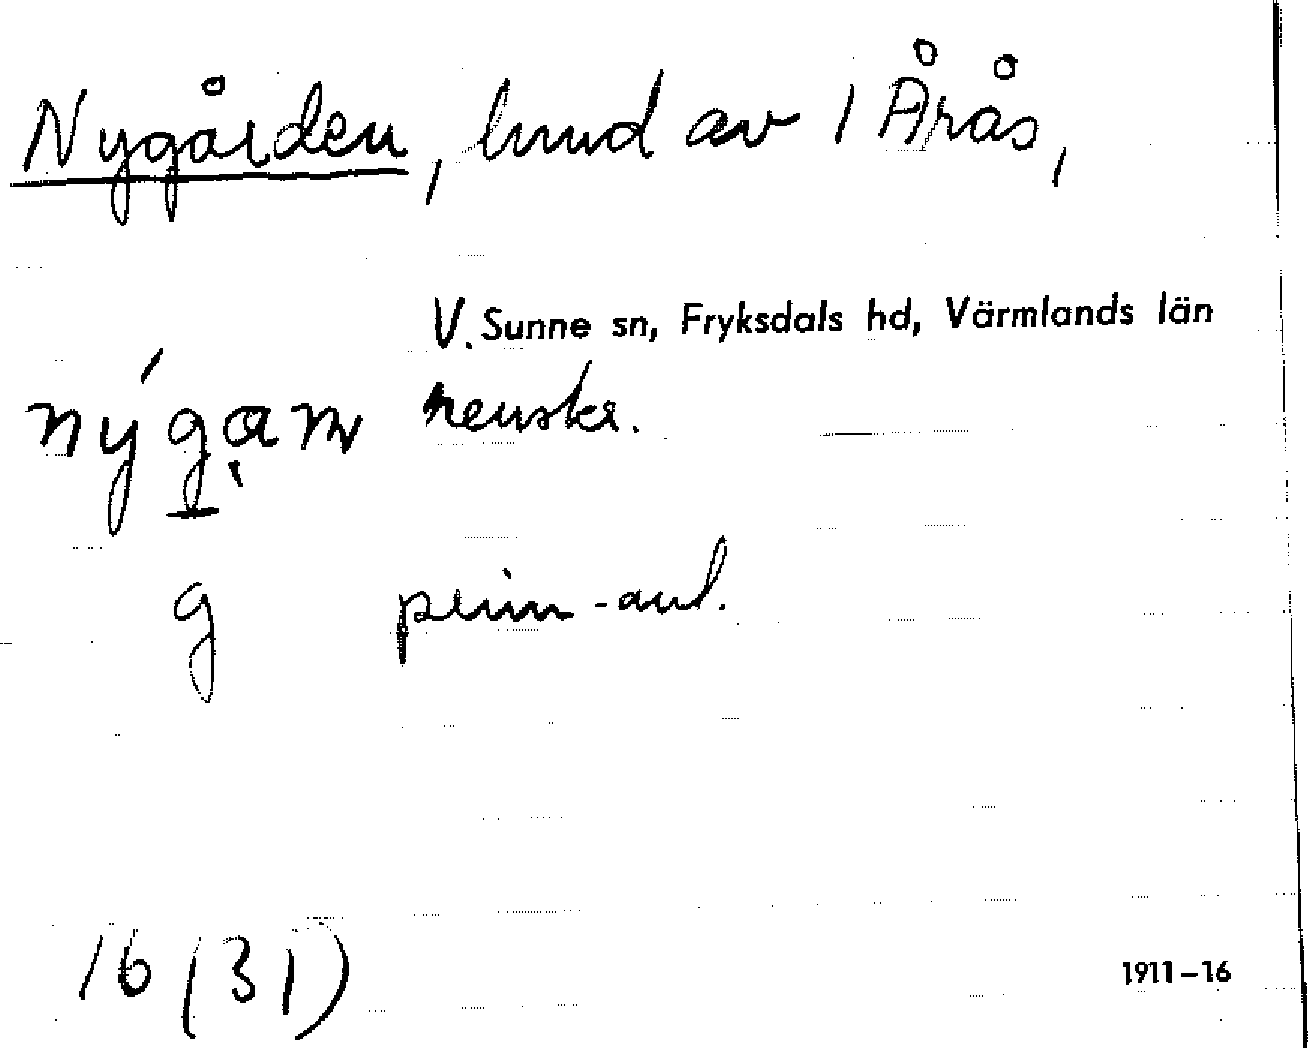 Nygården, hmd av 1 Årås,
V. Sunne sn, Fryksdals hd, Värmlands län
nýgam renskr.
g prim-anl.
16 (31)
1911-16